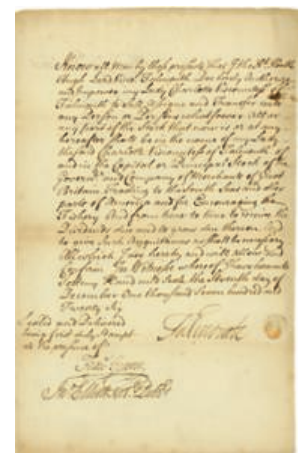 Know all Men by these presents that I the Rt. Honble
Hugh Lord Visct. Falmouth Doe hereby Authorize
and Impower my Lady Charlotte Viscountess of
Falmouth to Sell Assigne and Transfer unto
any Person or Persons whatsoever All or
any part of the Stock that now is or at any
hereafter shall be in the name of my Lady
Charlotte Viscountess of Falmouth of
and in the Capital or Principal Stock of the
Governr. and Company of Merchants of Great
Britain Trading to the South Seas and other
parts of America and for Encouraging the
Fishery And from time to time to receive the
Dividends due and to grow due thereon And
to give such Acquittances as shall be necessary
All which I doe hereby and will allow and
Confirm In Witness whereof I have hereunto
Sett my Hand and Seale the Seventh day of
December One thousand Seven hundred and
Twenty
Sealed and Delivered
being first duly Stampt
in the presence of
Falmouth
Jno. Elliott